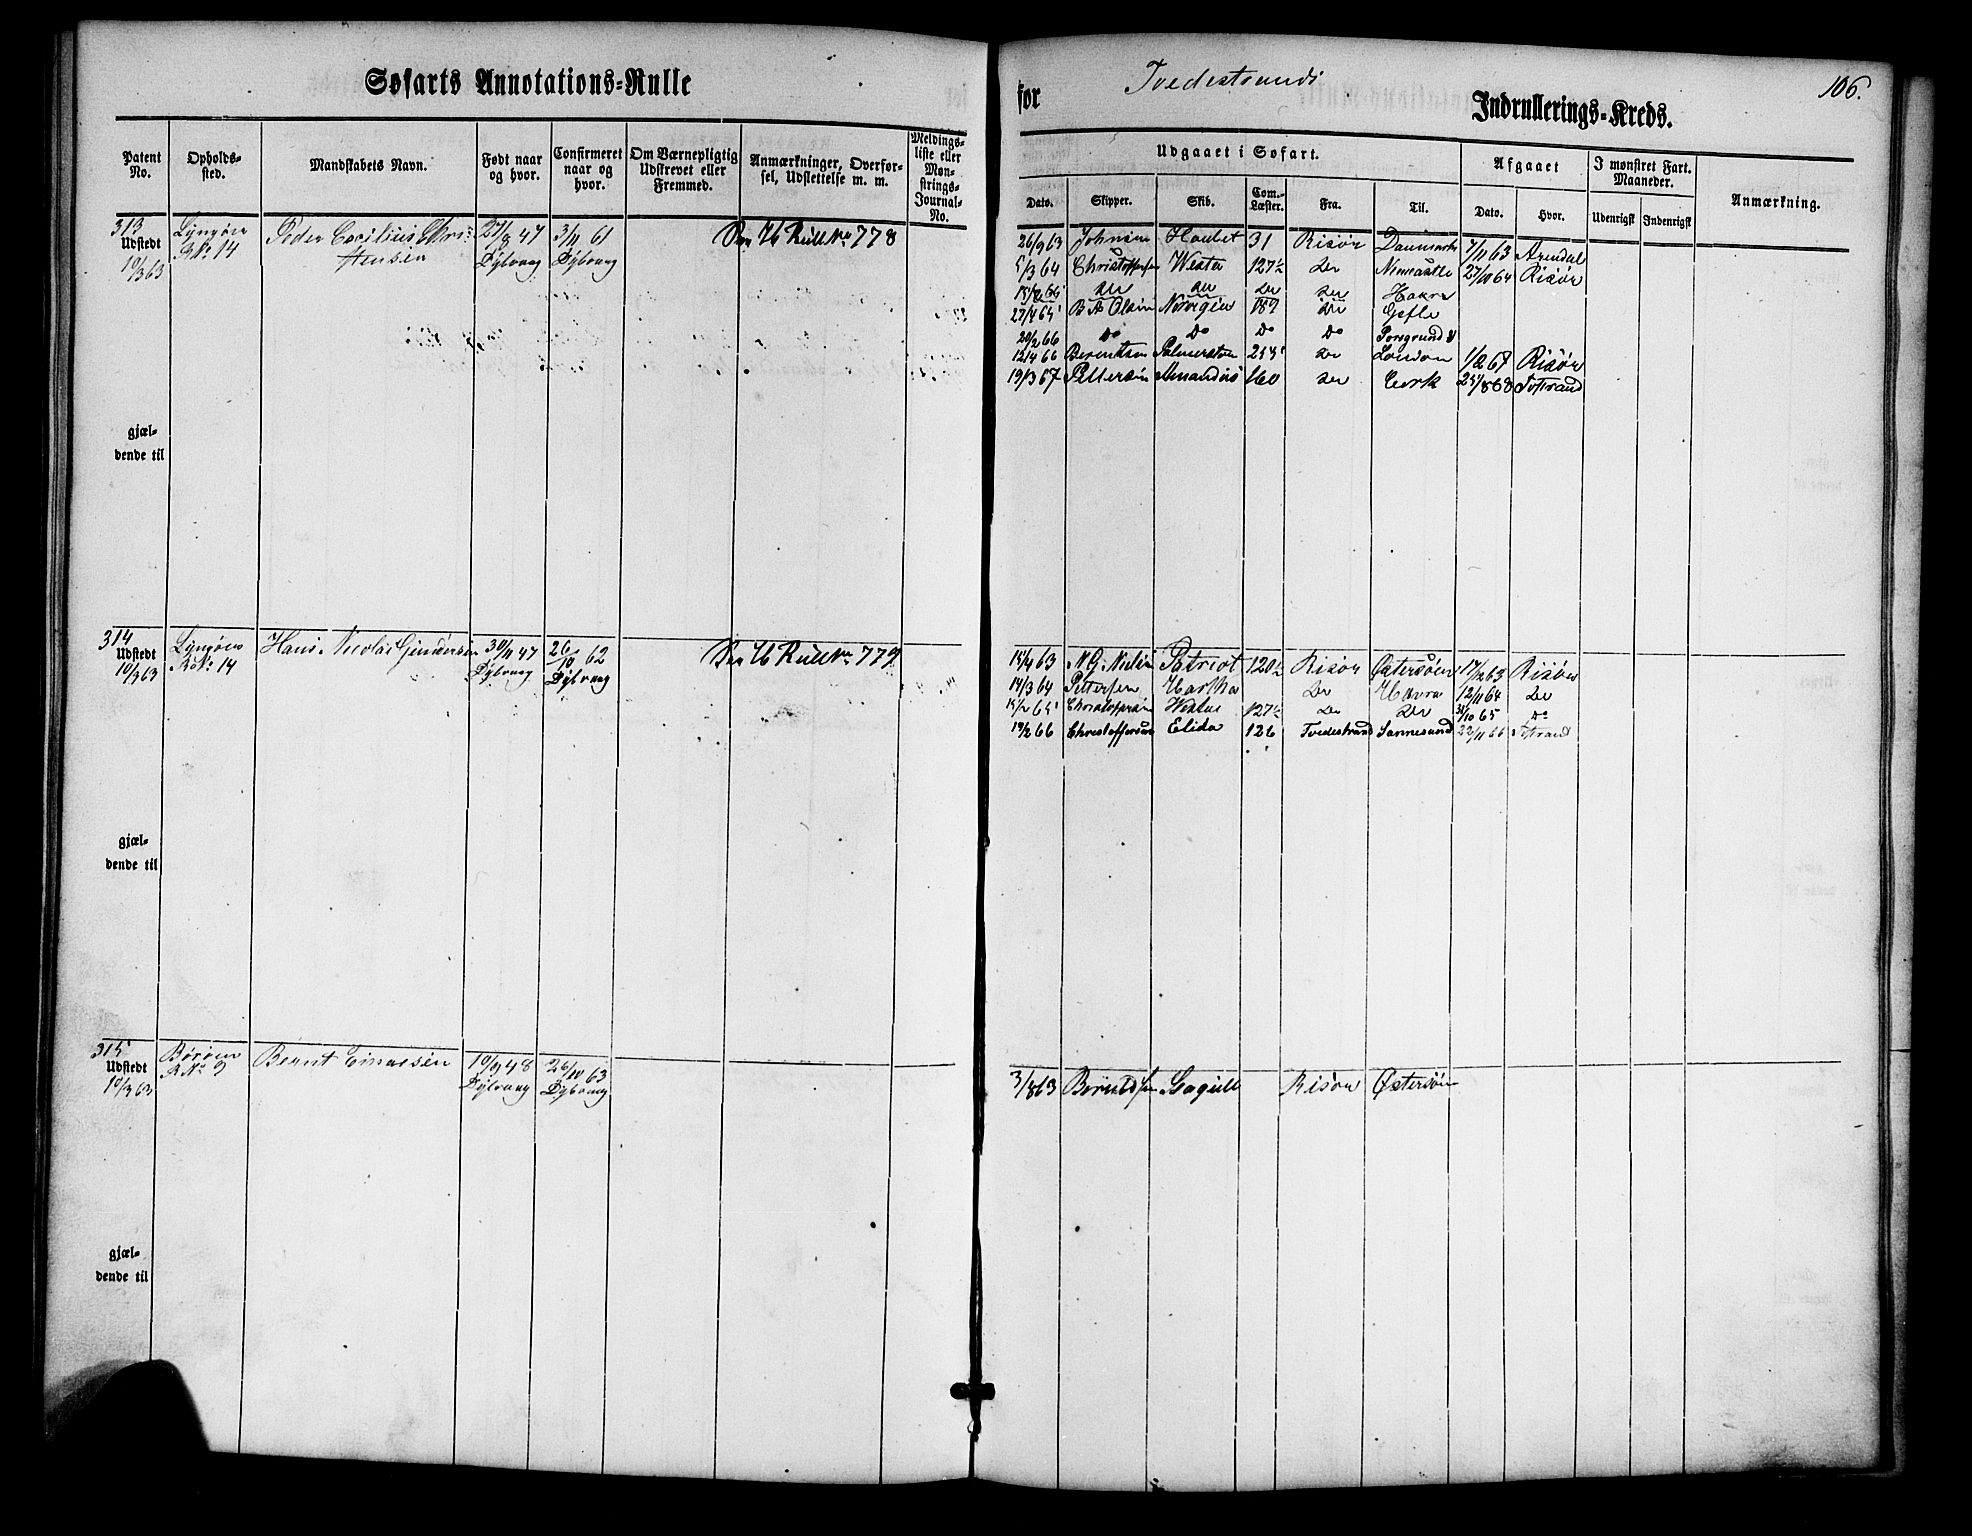 Søfarts Annotations-Rulle
for Tvedestrands Indrullerings-Kreds.
106.
Patent No.
Opholdssted.
Mandskabets Navn.
Født naar og hvor.
Confirmeret naar og hvor.
Om Værnepligtig Udskrevet eller Fremmed.
Anmærkninger, Overførsel, Udslettelse m. m.
Meldingsliste eller Mønstrings-Journal-No.
Udgaaet i Søfart.
Afgaaet
I mønstret Fart. Maaneder.
Anmærkning.
Dato. Skipper. Skib. Com.-Læster. Fra. Til. Dato. Hvor. Udenrigsk Indenrigsk
313 Lyngøer Peder Cecilius Chri- 27/8 47 3/11 61 See Ub Rull No 778
Udstedt R No 14 stensen Dybvaag Dybvaag
10/3 63
26/9 63 Johnsen Haabet 31 Risør Danmark 7/11 63 Arendal
5/3 64 Christoffersen Westa 127½ do Newcastle 27/10 64 Risør
15/2 65 do do do do Havre
27/4 65 B A Olsen Norvegia 159 do Gefle
20/2 66 Do Do Do Do Porsgrund
12/4 66 Berentsen Palmerston 255 do London 1/2 67 Risør
19/3 67 Pettersen Amandus 160 do Cork 25/8 68 T.strand
gjæl-
dende til
314 Lyngøer Hans Nicolai Gundersen 30/11 47 26/10 62 See Ub Rull No 779
Udstedt R No 14 Dybvaag Dybvaag
10/3 63
15/4 63 N. G. Nielsen Patriot 120½ Risør Østersøen 17/12 63 Risør
14/3 64 Pettersen Martha Do Havre 12/11 64 Do
15/2 65 Christoffersen Westa 127½ Do Do 31/10 65 Do
19/2 66 Christoffersen Elida 126 Tvedestrand Sannesund 22/11 66 T.strand
gjæl-
dende til
315 Børøen Bernt Einarsen 10/9 48 26/10 63
Udstedt R No 9 Dybvaag Dybvaag
10/3 63
3/8 63 Berntsen Risør Østersøen
gjæl-
dende til